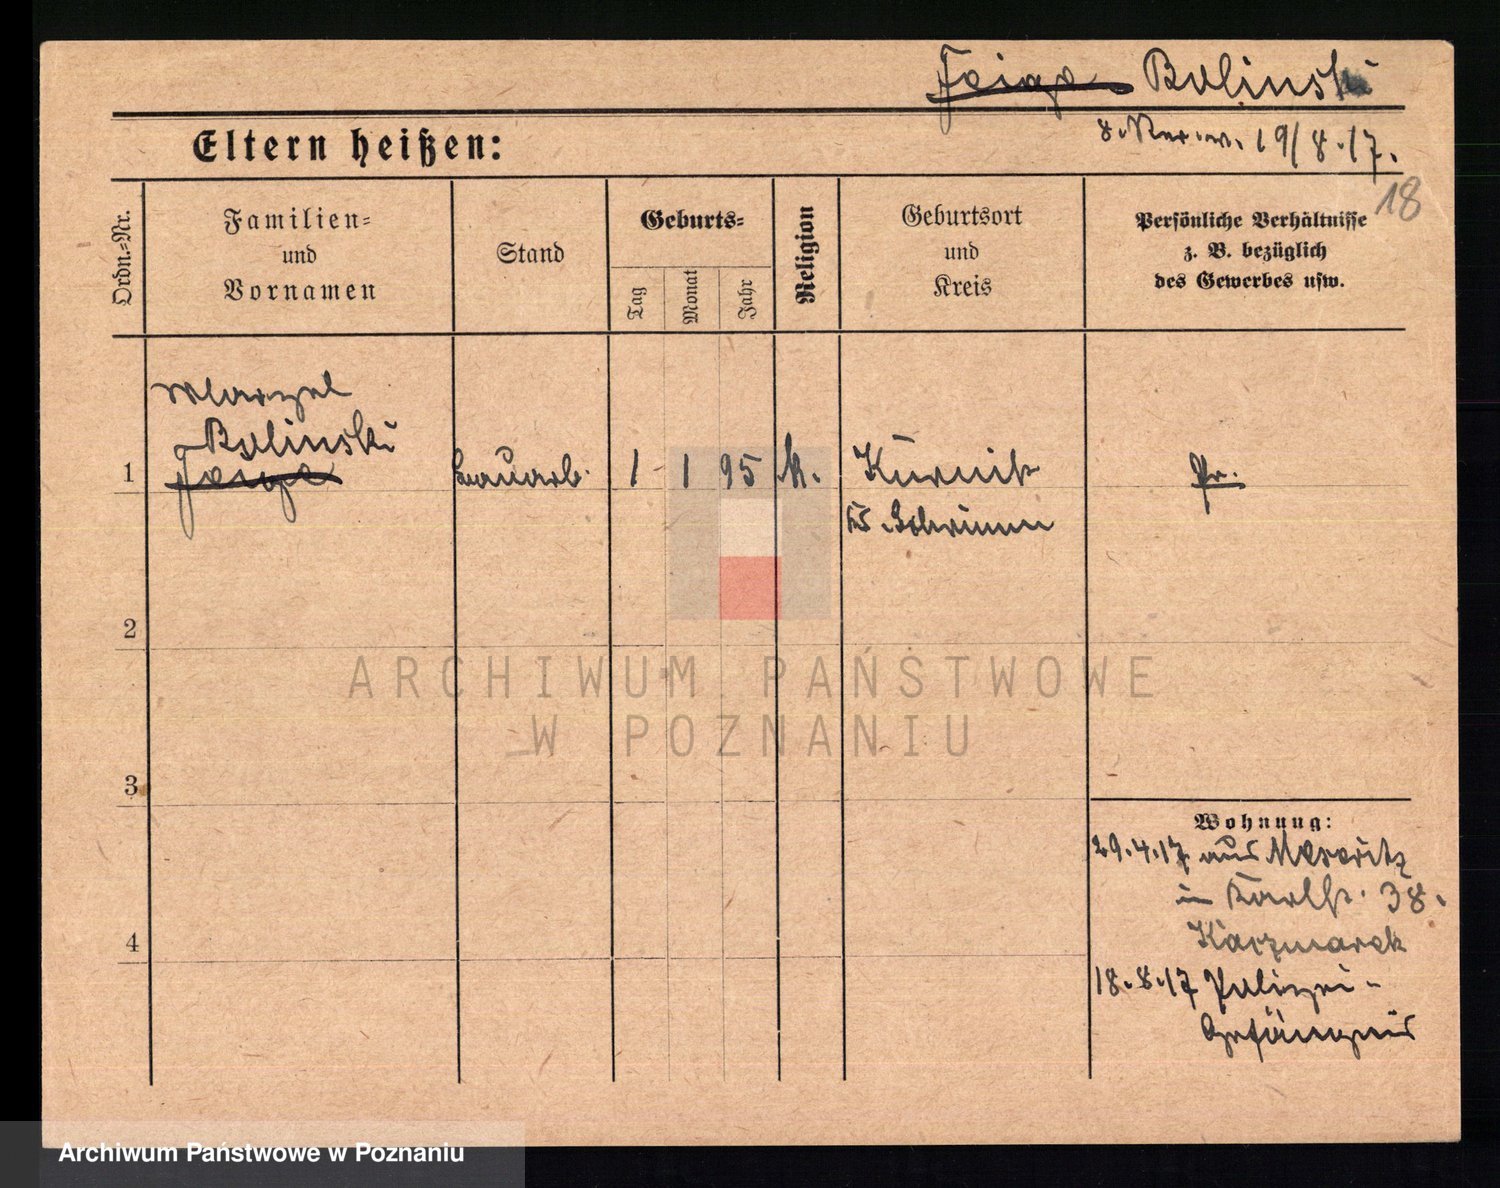 Feige Bolinski
Eltern heißen:
8. Rev. v. 19/8.17.
18
Ordn.-Nr.
Familien-
und
Vornamen
Stand
Geburts-
Tag
Monat
Jahr
Religion
Geburtsort
und
Kreis
Persönliche Verhältnisse
z. B. bezüglich
des Gewerbes usw.
Marzel
Bolinski
1 Feige Bauarb. 1 1 95 k. Kurnik Pr.
Ks Schrimm
2
3
Wohnung:
29.4.17 aus Meseritz
in Karlstr. 38.
Kaczmarek
4
18.8.17 Polizei-
Gefängnis
ARCHIWUM PAŃSTWOWE
W POZNANIU
Archiwum Państwowe w Poznaniu